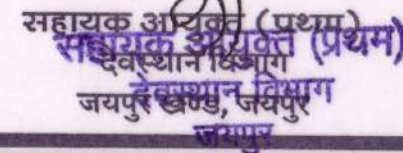 सहायक आयुक्त (प्रथम)
सहायक आयुक्त (प्रथम)
देवस्थान विभाग
देवस्थान विभाग
जयपुर खण्ड, जयपुर
जयपुर